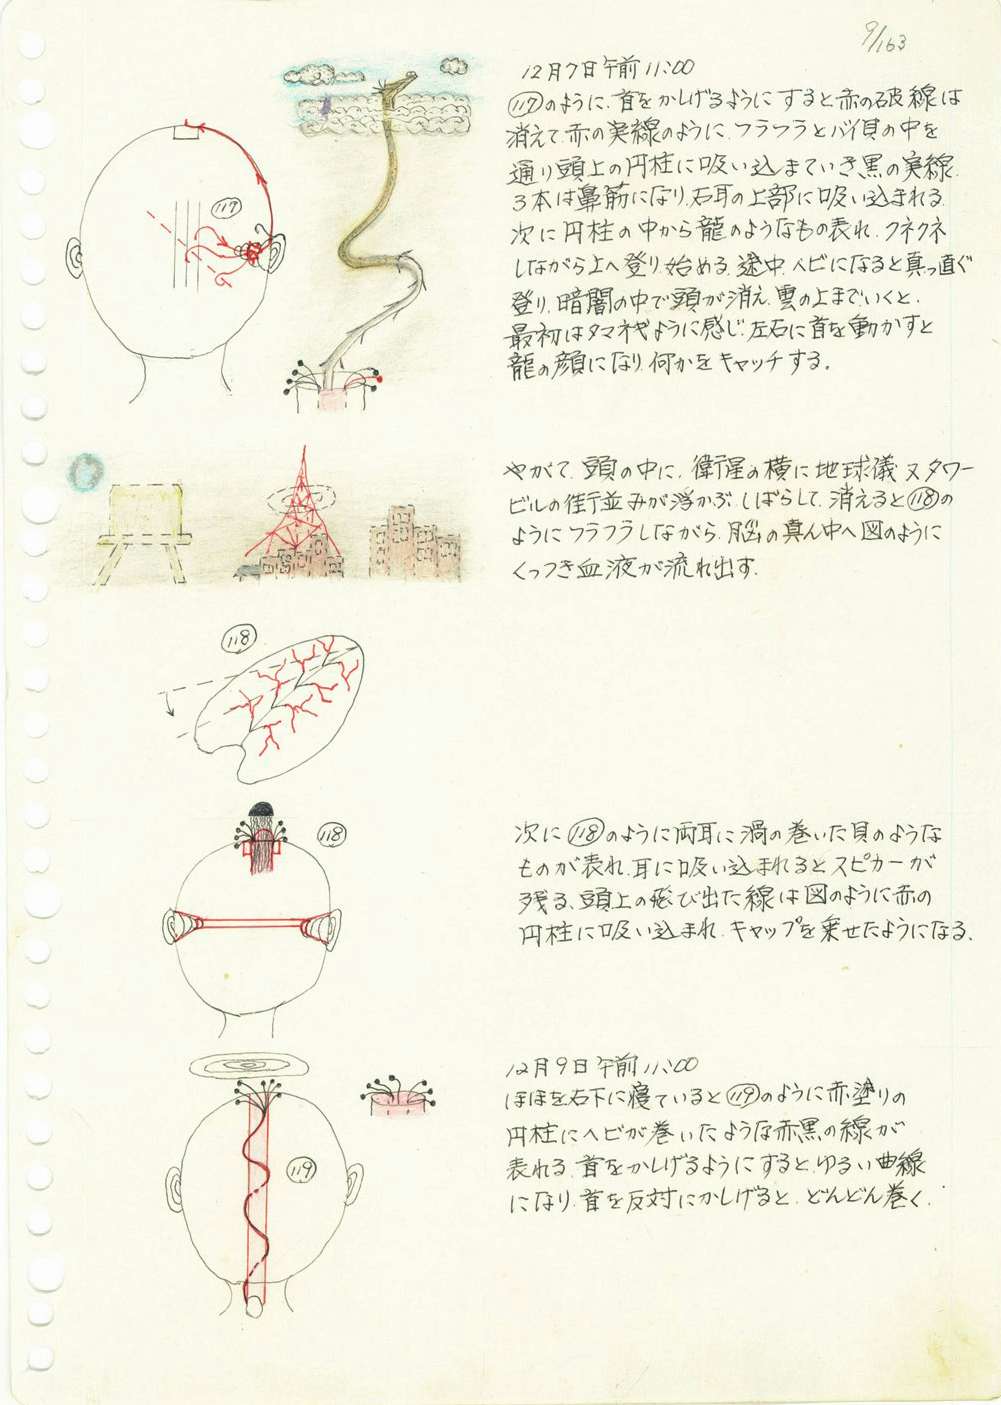 9/163
12月7日午前11:00
⑪⑦のように、首をかしげるようにすると赤の破線は
消えて、赤の実線のように、フラフラとバイ貝の中を
通り頭上の円柱に吸い込まていき黒の実線
3本は鼻筋になり、右耳の上部に吸い込まれる。
次に円柱の中から龍のようなもの表れ、クネクネ
しながら上へ登り始める。途中、ヘビになると真っ直ぐ
登り、暗闇の中で頭が消え、雲の上までいくと、
最初はタマネギように感じ、左右に首を動かすと
龍の顔になり、何かをキャッチする。
117
やがて、頭の中に、衛星の横に地球儀ヌタワー
ビルの街並みが浮かぶ。しばらして、消えると(118)の
ようにフラフラしながら、脳の真ん中へ図のように
くっつき血液が流れ出す。
118
118
次に(118)のように両耳に渦の巻いた貝のような
ものが表れ、耳に吸い込まれるとスピカーが
残る、頭上の飛び出た線は図のように赤の
円柱に吸い込まれ、キャップを乗せたようになる。
12月9日午前11:00
ほほを右下に寝ていると(119)のように赤塗りの
円柱にヘビが巻いたような赤黒の線が
表れる。首をかしげるようにすると、ゆるい曲線
になり、首を反対にかしげると、どんどん巻く。
119